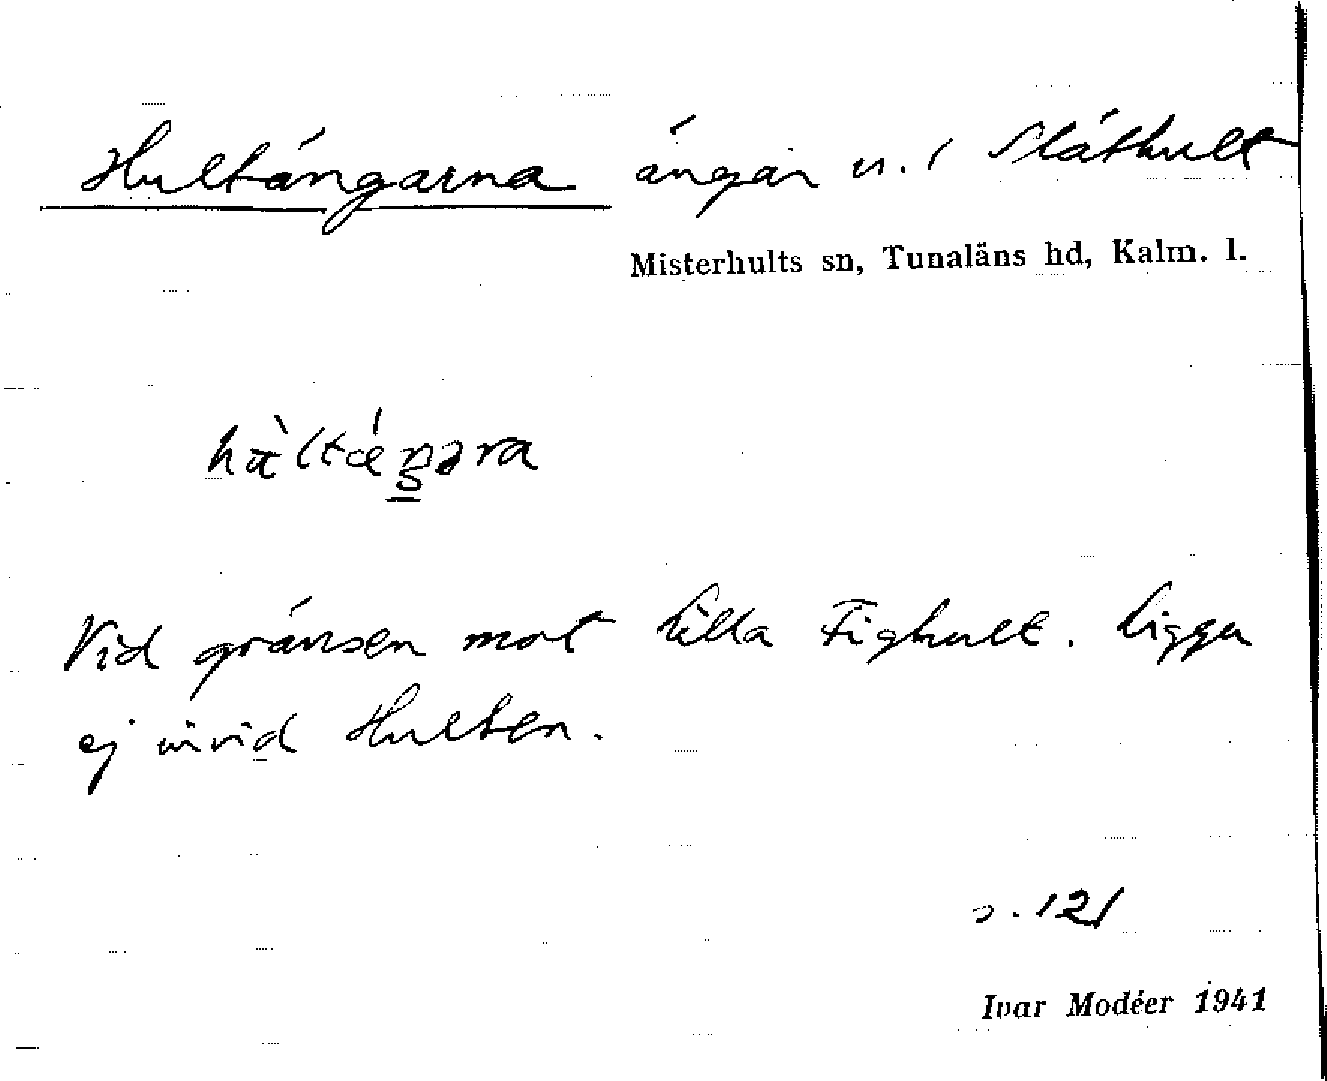 Hultängarna ängar u. / Släthult
Misterhults sn, Tunaläns hd, Kalm. l.
hàltǽŋara
Vid gränsen mot Lilla Fighult. Ligger
ej invid Hulten.
s. 121
Ivar Modéer 1941